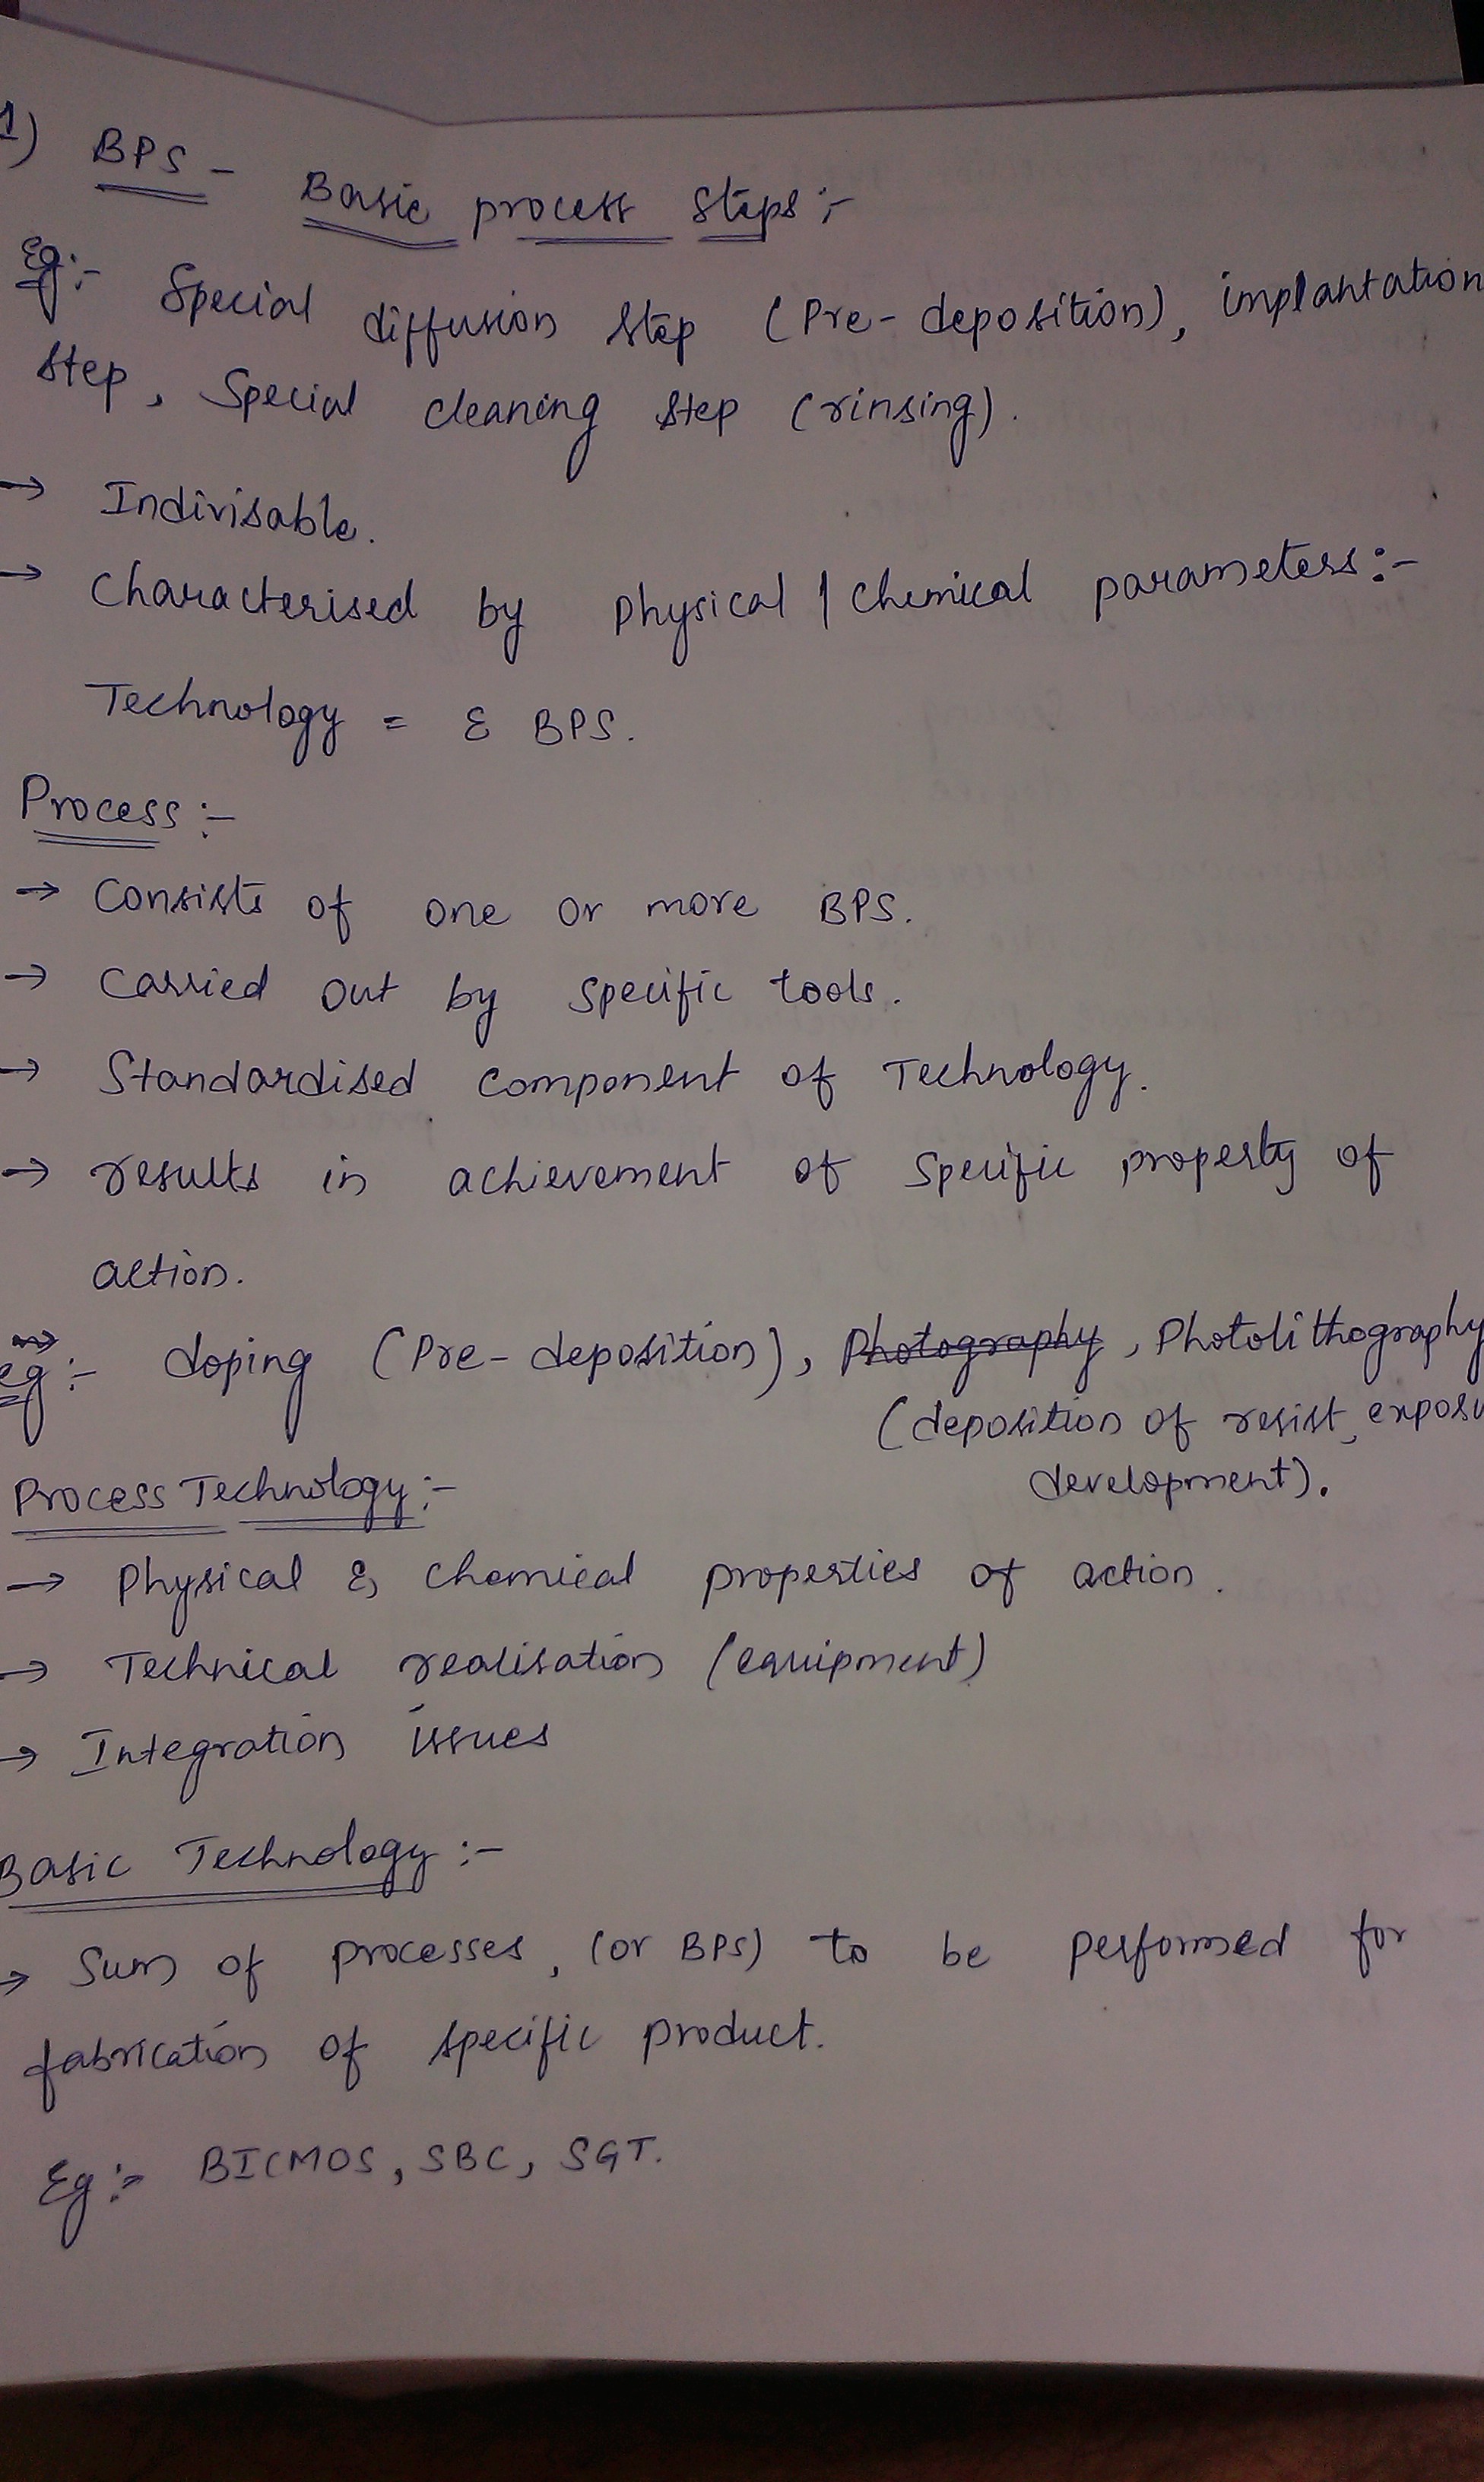 1) BPS - Basic process steps :-
Eg:- Special diffusion step (Pre-deposition), implantation
step, Special cleaning step (rinsing).
→ Indivisable.
→ Characterised by physical / chemical parameters:-
Technology = Σ BPS.
Process :-
→ Consists of one or more BPS.
→ Carried out by specific tools.
→ Standardised component of Technology.
→ results in achievement of specific property of
action.
eg:- doping (Pre-deposition), Photography, Photolithography
(deposition of resist, exposu
development).
Process Technology :-
→ Physical & chemical properties of action.
→ Technical realisation (equipment)
→ Integration issues
Basic Technology :-
→ Sum of processes, (or BPS) to be performed for
fabrication of specific product.
Eg:- BICMOS, SBC, SGT.